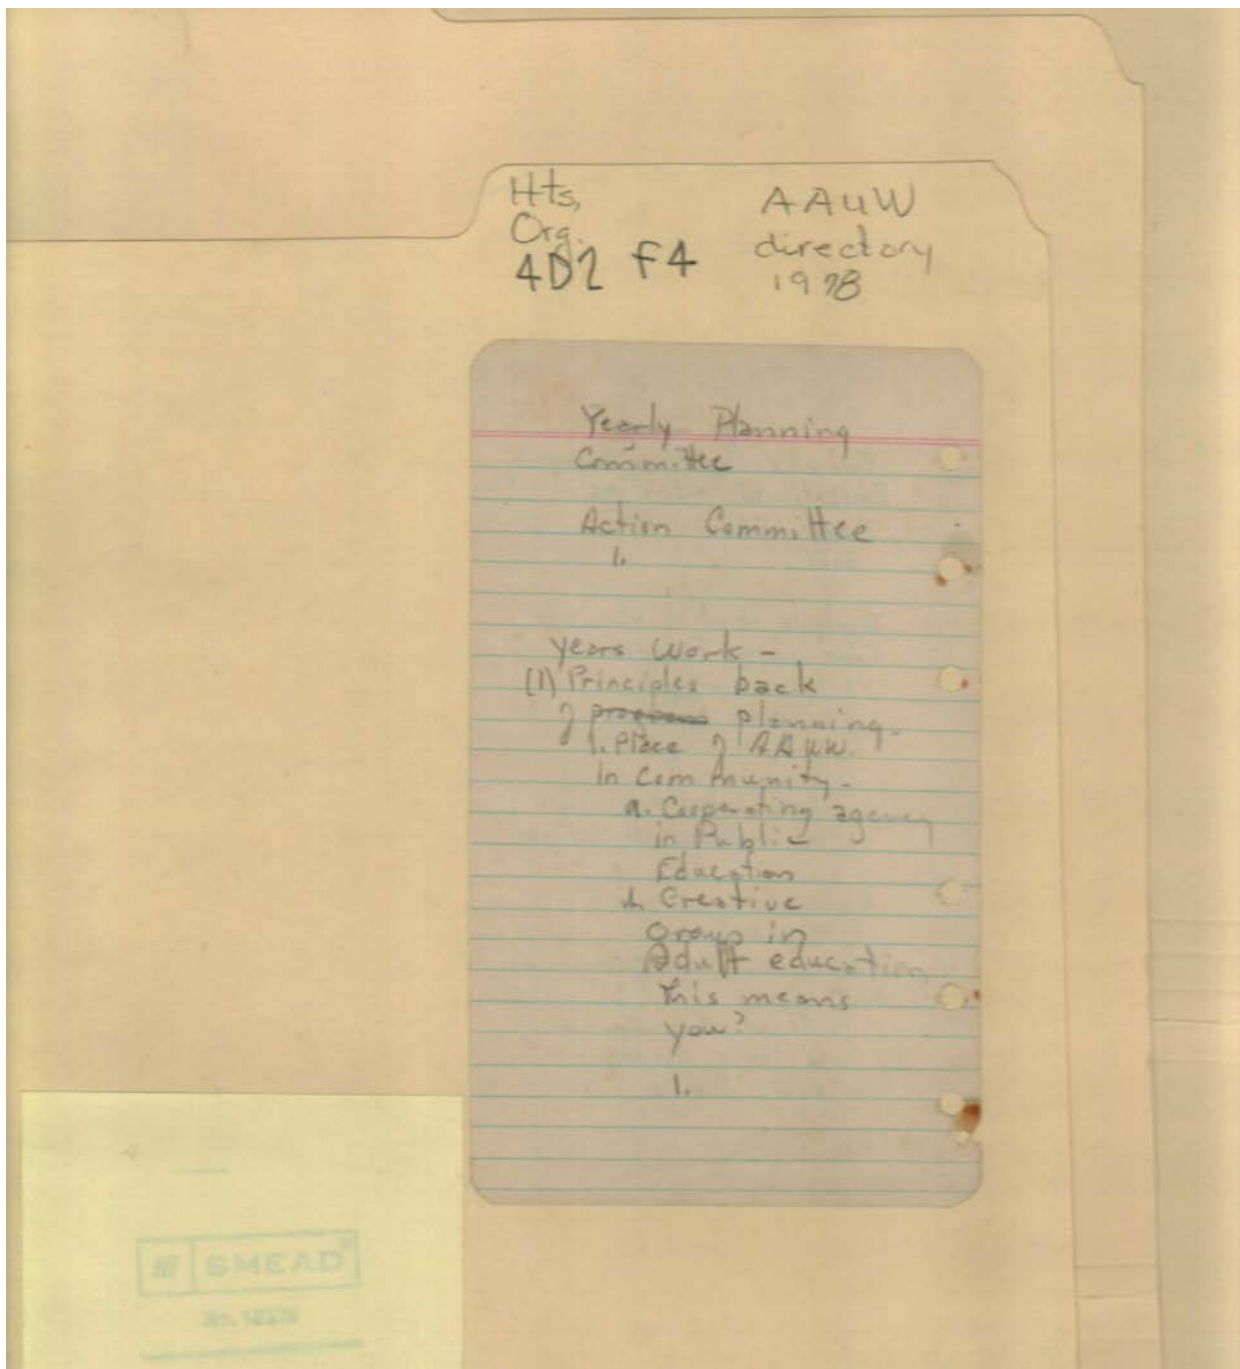 Hts,
Org.
4D2 F4
AAUW
directory
1978
Yearly Planning
Committee
Action Committee
1.
years Work -
(1) Principles back
of planning.
1. Place of AAUW.
in Community.
a. Cooperating agency
in Public
Education
b. Creative
group in
Adult education
This means
you?
1.
SMEAD